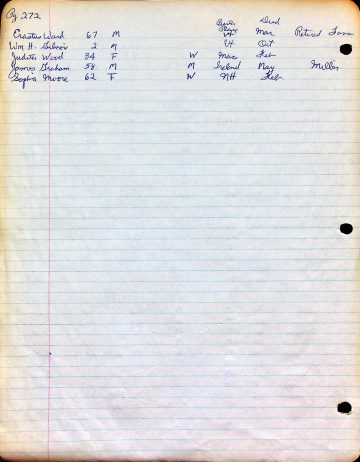 Pg. 272
Birth Place Died
Erastus Ward 67 M Vt Mar Retired Farm
Wm H. 2 M Vt Oct
Judith Wood 84 F W Mass Feb
James Graham 58 M M Ireland May Miller
Sophia Moore 62 F W NH Feb